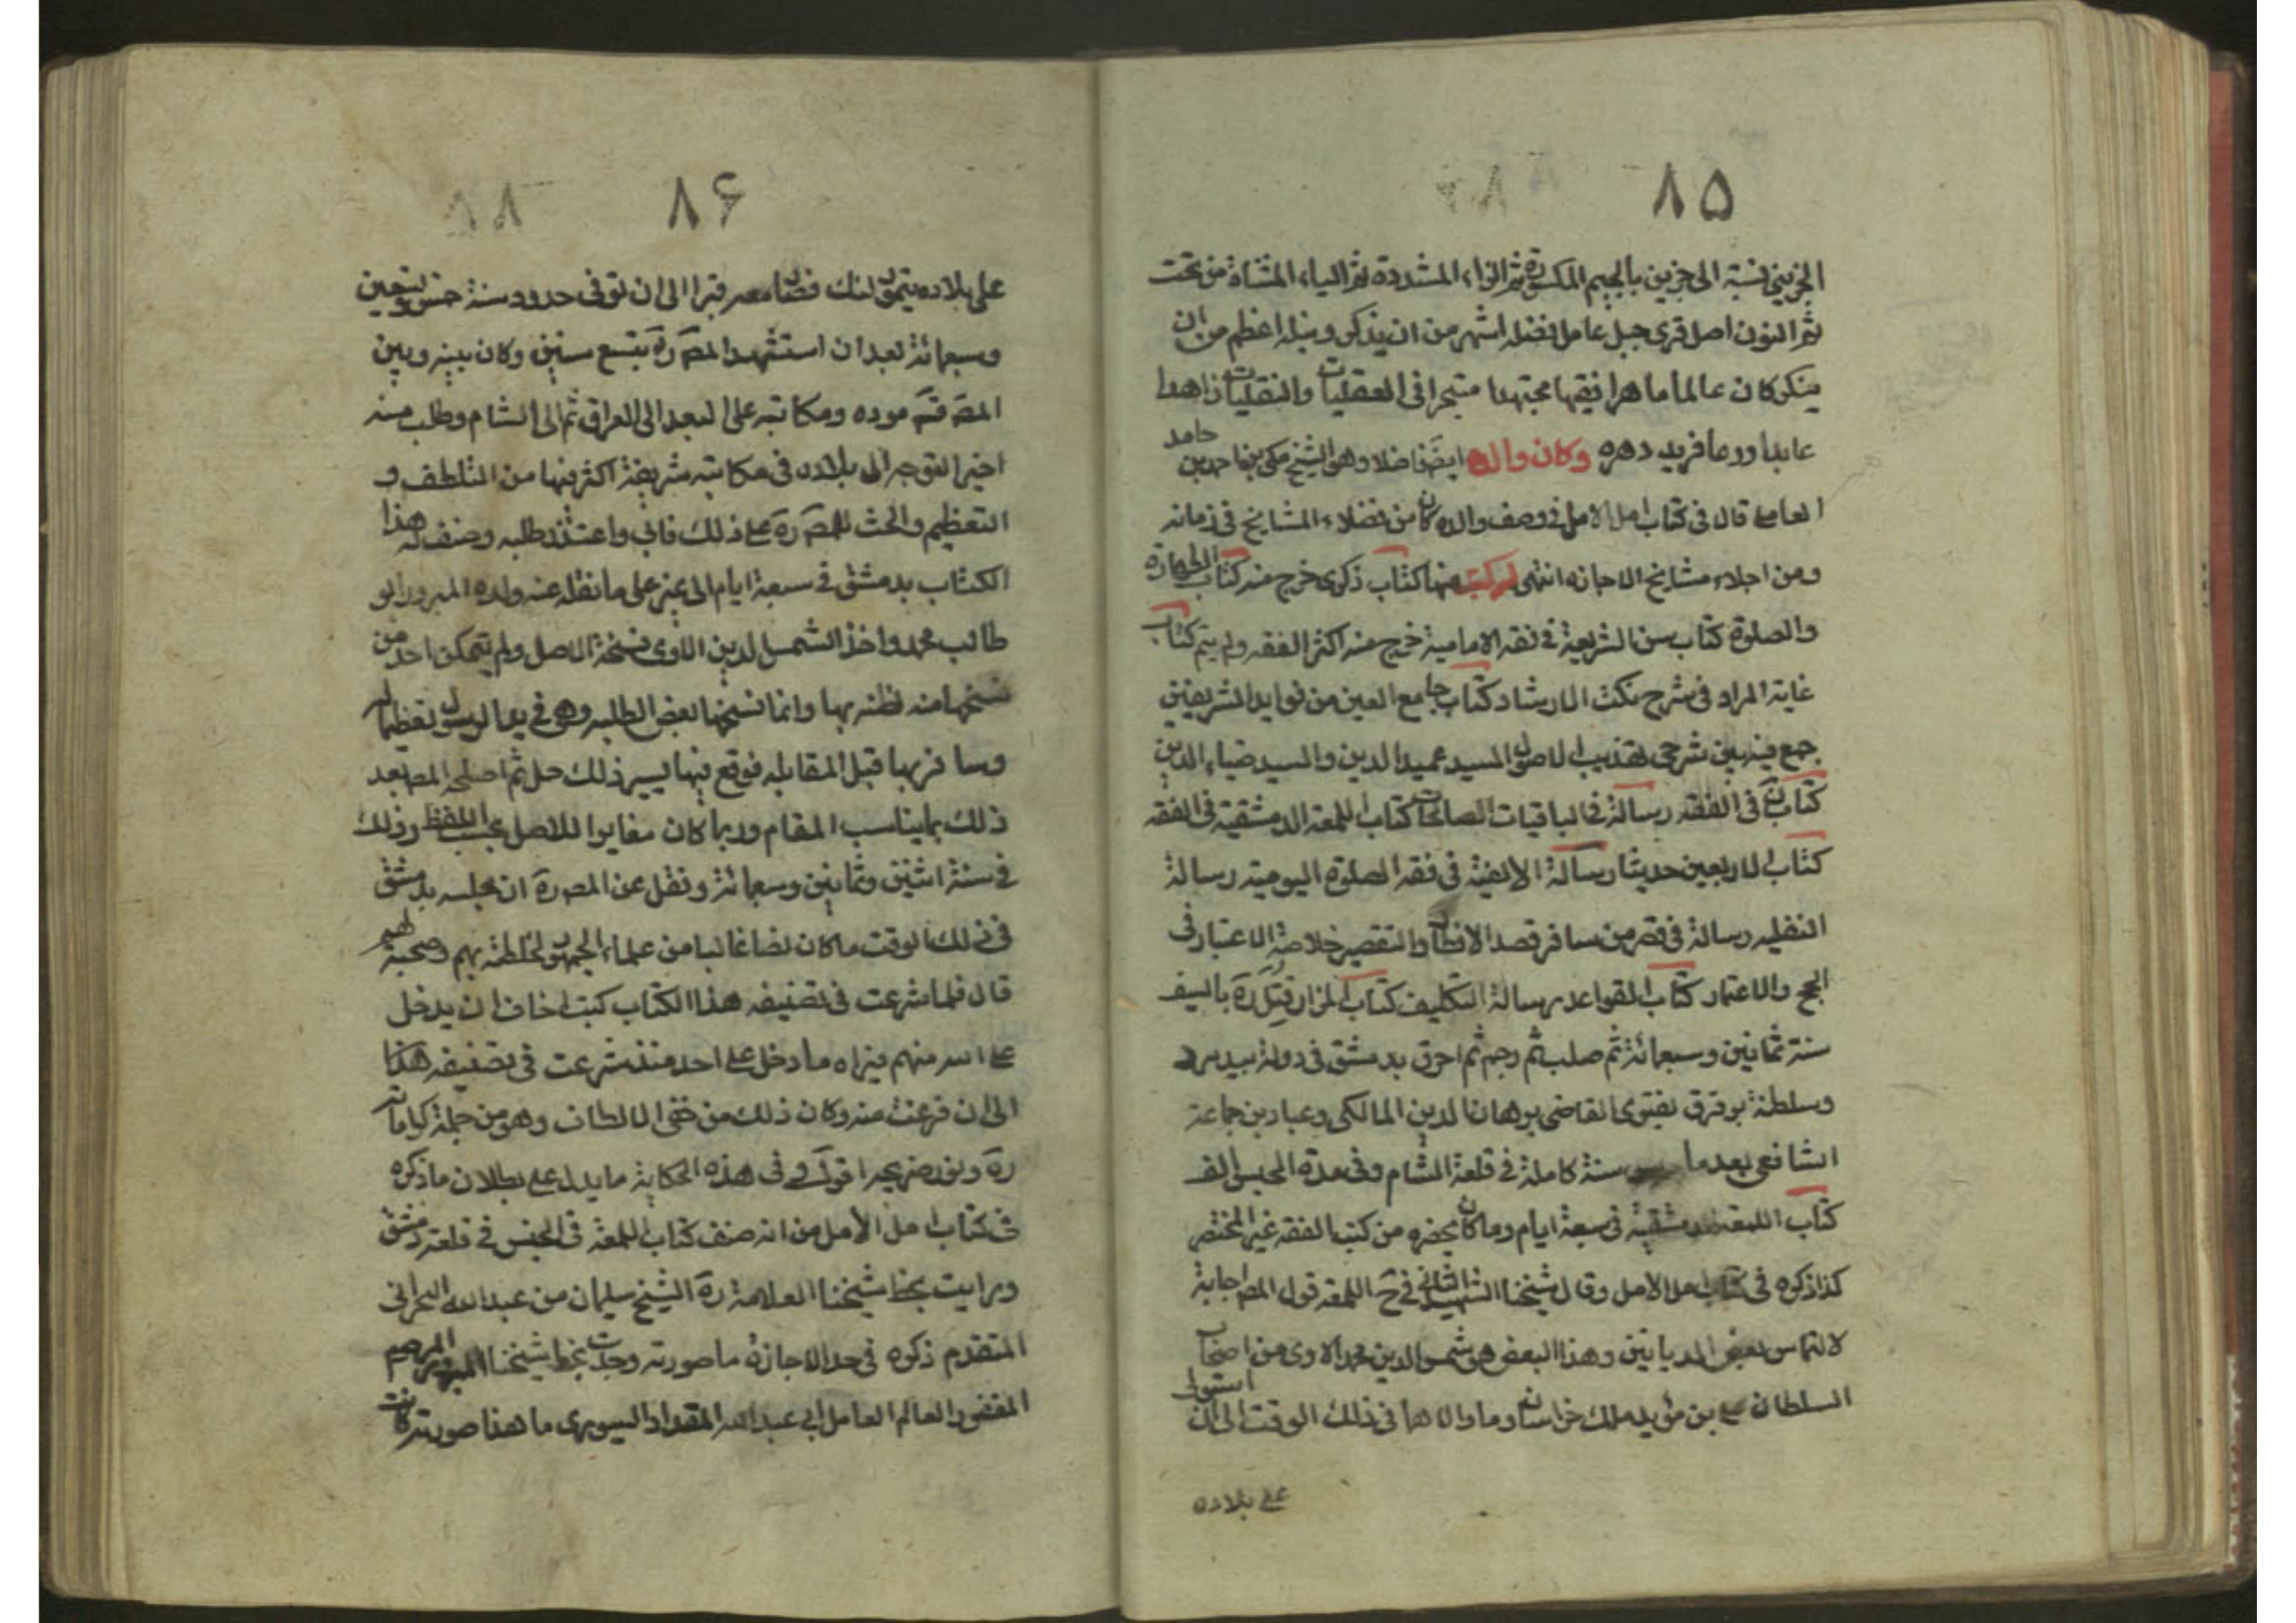 ٨۵
الجزيني نسبة الى جزين بالجيم المكسورة ثم الزاء المشددة ثم الياء المثناة من تحت
ثم النون اصل قرى جبل عامل فضله اشهر من ان يذكر ونبله اعظم من ان
ينكر كان عالما ماهرا فقيها مجتهدا متبحرا في العقليات والنقليات زاهدا
عابدا ورعا فريد دهره وكان والده ايضا فاضلا وهو الشيخ مكي بن حامد
العاملي قال في كتاب امل الامل في وصف والده كان من فضلاء المشايخ في زمانه
ومن اجلاء مشايخ الاجازه انتهى له كتب منها كتاب ذكرى خرج منه كتاب الطهارة
والصلوة كتاب سن الشريعة في فقه الامامية خرج منه اكثر الفقه ولم يتم كتاب
غاية المراد في شرح نكت الارشاد كتاب جامع العين من فوايد الشريفين
جمع فيه بين شرحي تهذيب الاصول السيد عميد الدين والسيد ضياء الدين
كتاب في الفقه رسالة في الباقيات الصالحات كتاب اللمعه الدمشقية في الفقه
كتاب الاربعين حديثا رسالة الالفية في فقه الصلوة اليومية رسالة
النفليه رسالة في قصر من سافر قصد الافطار والتقصير خلاصة الاعتبار في
الحج والاعتمار كتاب القواعد رسالة التكليف كتاب المزار قتل ره بالسيف
سنة ثمانين وسبعمائة ثم صلب ثم رجم ثم احرق بدمشق في دولة بيدمر
وسلطنة برقوق بفتوى القاضي برهان الدين المالكي وعباد بن جماعة
الشافعي بعدما سنة كاملة في قلعة الشام وفي مدة الحبس الف
كتاب اللمعه الدمشقية في سبعة ايام وما كان يحضره من كتب الفقه غير المختصر
كذا ذكره في كتاب امل الامل وقال شيخنا الشهيد الثاني في ح اللمعه قول المص اجابة
لالتماس بعض الديانين وهذا البعض هو شمس الدين محمد الاوى من اصحاب
السلطان علي بن مؤيد ملك خراسان وما والاها في ذلك الوقت الى ان استولى
على بلاده
٨۶
على بلاده تيمور لنك فصار معه قسرا الى ان توفي في حدود سنة خمس وتسعين
وسبعمائة بعد ان استشهد المص ره بتسع سنين وكان بينه وبين
المص قده موده ومكاتبه على البعد الى العراق ثم الى الشام وطلب منه
اخيرا التوجه الى بلاده في مكاتبه شريفة اكثر فيها من التلطف و
التعظيم والحث للمص ره على ذلك فابى واعتذر طلبه وصنف له هذا
الكتاب بدمشق في سبعة ايام لا غير على ما نقله عنه ولده المبرور ابو
طالب محمد واخذ الشمس الدين الاوى نسخة الاصل ولم يتمكن احد من
نسخها منه لظنه بها وانما نسخها بعض الطلبه وهي في يد الرسول تعظيما له
وسافر بها قبل المقابله فوقع فيها يسير ذلك خلل ثم اصلحه المص بعد
ذلك بما يناسب المقام وربما كان مغايرا للاصل بحسب اللفظ وذلك
في سنة اثنين وثمانين وسبعمائة ونقل عن المص ره ان مجلسه بدمشق
في ذلك الوقت ما كان يخلو غالبا من علماء الجمهور لخلطته بهم وصحبته لهم
قال فلما شرعت في تصنيف هذا الكتاب كنت اخاف ان يدخل
على احد منهم فيراه ما دخل علي احد منذ شرعت في تصنيفه هذا
الى ان فرغت منه وكان ذلك من خفي الالطاف وهو من جملة كراماته
ره ونور ضريحه اقول وفي هذه الحكاية ما يدل على بطلان ما ذكره
في كتاب امل الأمل من انه صنف كتاب اللمعه في الحبس في قلعة دمشق
ورايت بخط شيخنا العلامة ره الشيخ سليمان بن عبد الله البحراني
المتقدم ذكره في حد الاجازة ما صورته وجدت بخط شيخنا المرحوم
المغفور العالم العامل ابي عبد الله المقداد السيوري ما هذا صورته كانت